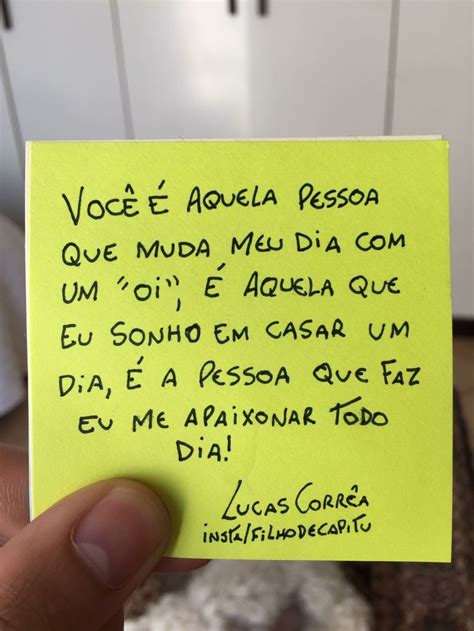 VOCÊ É AQUELA PESSOA
QUE MUDA MEU DIA COM
UM "OI", É AQUELA QUE
EU SONHO EM CASAR UM
DIA, É A PESSOA QUE FAZ
EU ME APAIXONAR TODO
DIA!
LUCAS CORRÊA
INSTA/FILHODECAPITU